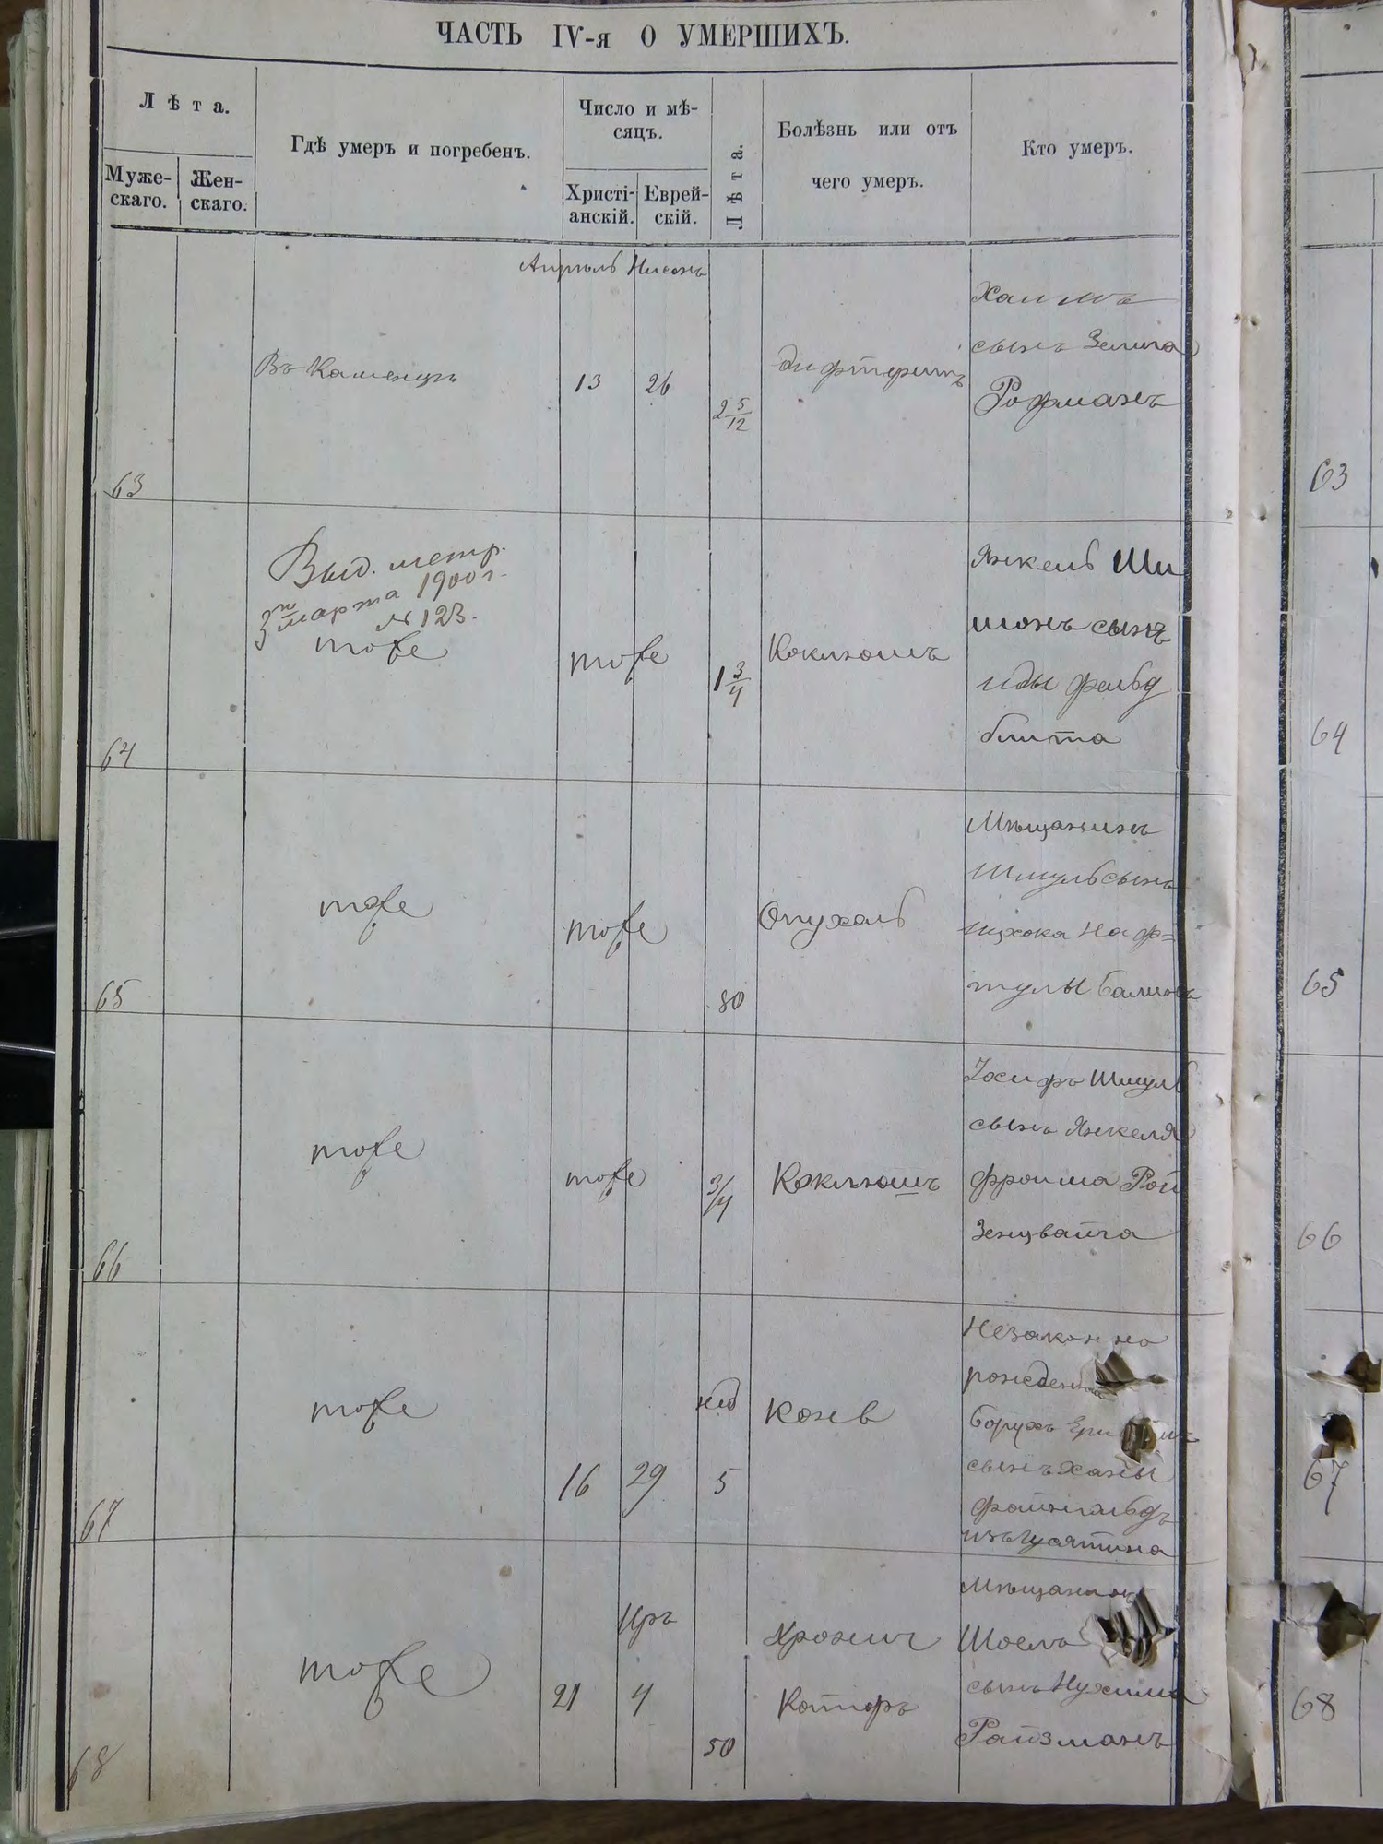 ЧАСТЬ IV-я О УМЕРШИХЪ.
Лѣта.
Муже-
скаго.
Жен-
скаго.
Гдѣ умеръ и погребенъ.
Число и мѣ-
сяцъ.
Христі-
анскій.
Еврей-
скій.
Лѣта.
Болѣзнь или отъ
чего умеръ.
Кто умеръ.
Апрель Нисонъ
63
Въ Каменцѣ
13
26
2 5/12
дифтеритъ
Хаимъ
сынъ Зелига
Рофманъ
63
64
Выд. метр.
3го марта 1900 г.
№ 123.
тоже
тоже
1 3/4
Коклюшъ
Янкель Ши
монъ сынъ
Иды Фельд
блита
64
65
тоже
тоже
80
Опухоль
Мѣщанинъ
Шмуль сынъ
Ицхока Наф=
тулы
65
66
тоже
тоже
3/4
Коклюшъ
Іосифъ Шмуль
сынъ Янкеля
Фроима Рой
зенцвайга
66
67
тоже
16
29
нед
5
Конв
Незаконно
рожден
Борухъ
сынъ Ханы
Файнгольдъ
изъ Гусятина
67
68
тоже
Іяръ
21
4
50
Хронич
Катаръ
Мѣщанинъ
Шоелъ
сынъ Нухима
Райзманъ
68